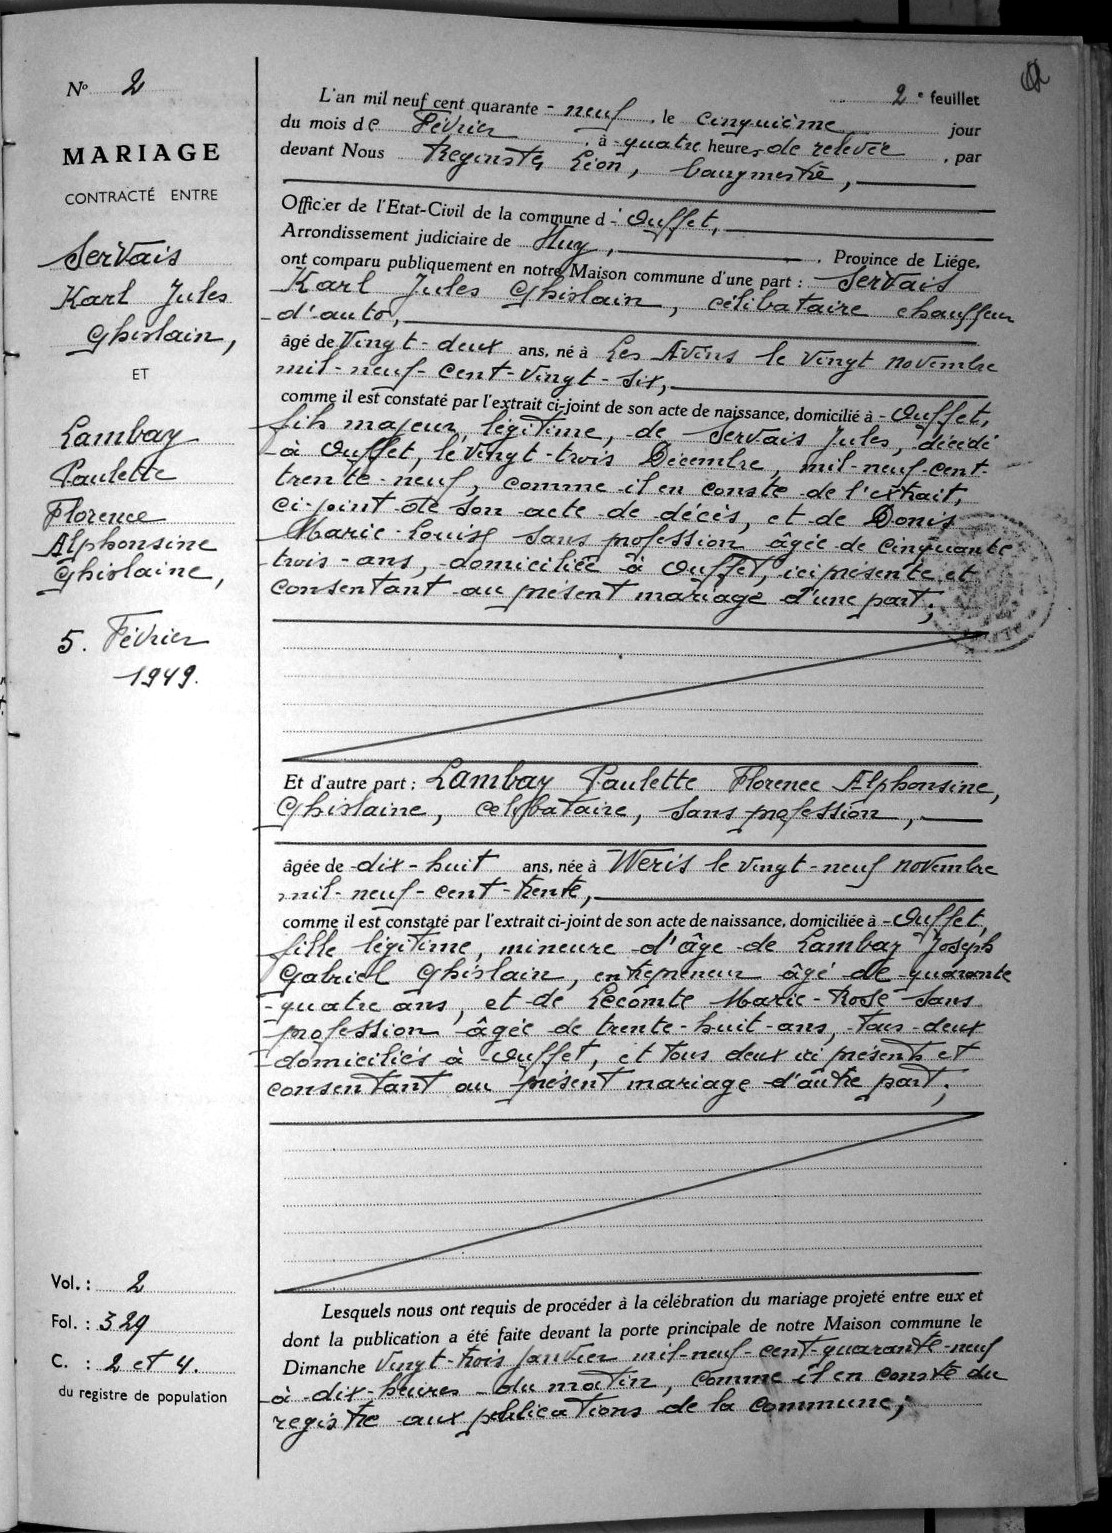 Nº 2
MARIAGE
CONTRACTÉ ENTRE
Servais
Karl Jules
Ghislain,
ET
Lambay
Paulette
Florence
Alphonsine
Ghislaine,
5. Février
1949.
Vol. : 2
Fol. : 329
C. : 2 et 4.
du registre de population
2 e feuillet
L'an mil neuf cent quarante - neuf, le cinquième jour
du mois de Février, à quatre heures de relevée, par
devant Nous Léon, bourgmestre,
Officier de l'Etat-Civil de la commune d' Ouffet,
Arrondissement judiciaire de Huy, Province de Liége,
ont comparu publiquement en notre Maison commune d'une part : Servais
Karl Jules Ghislain, célibataire chauffeur
d'auto,
âgé de Vingt-deux ans, né à Les Avins le vingt novembre
mil-neuf-cent-vingt-six,
comme il est constaté par l'extrait ci-joint de son acte de naissance, domicilié à Ouffet,
fils majeur, légitime, de Servais Jules, décédé
à Ouffet, le vingt-trois Décembre, mil-neuf-cent-
trente-neuf, comme il en conste de l'extrait,
ci-joint de son acte de décès, et de Donis
Marie-Louise sans profession âgée de cinquante
trois-ans, domiciliée à Ouffet, ici présente et
consentant au présent mariage d'une part;
Et d'autre part : Lambay Paulette Florence Alphonsine,
Ghislaine, célibataire, sans profession,
âgée de dix-huit ans, née à Wéris le vingt-neuf novembre
mil-neuf-cent-trente,
comme il est constaté par l'extrait ci-joint de son acte de naissance, domiciliée à Ouffet,
fille légitime, mineure d'âge de Lambay Joseph
Gabriel Ghislain, entrepreneur âgé de quarante
quatre ans, et de Lecomte Marie-Rose sans
profession âgée de trente-huit-ans, tous-deux
domiciliés à Ouffet, et tous deux ici présents et
consentant au présent mariage d'autre part;
Lesquels nous ont requis de procéder à la célébration du mariage projeté entre eux et
dont la publication a été faite devant la porte principale de notre Maison commune le
Dimanche vingt-trois janvier mil-neuf-cent-quarante-neuf
à dix-heures du matin, comme il en conste du
registre aux publications de la commune;